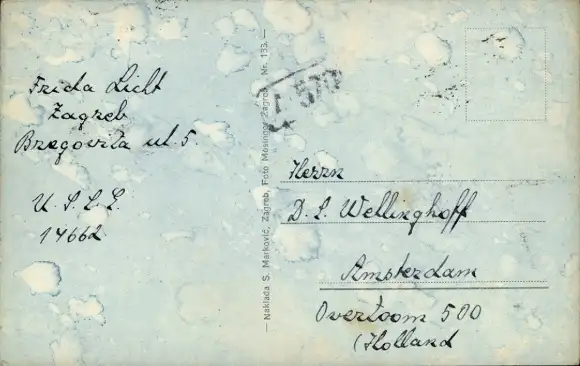 Frida Licht
Zagreb
Bregovita ul. 5.
U. S. L. E.
14662
— Naklada S. Marković, Zagreb, Foto Mosinger Zagreb, Nr. 133. —
T. 570
Herrn
D. L. Wellinghoff
Amsterdam
Overtoom 500
(Holland